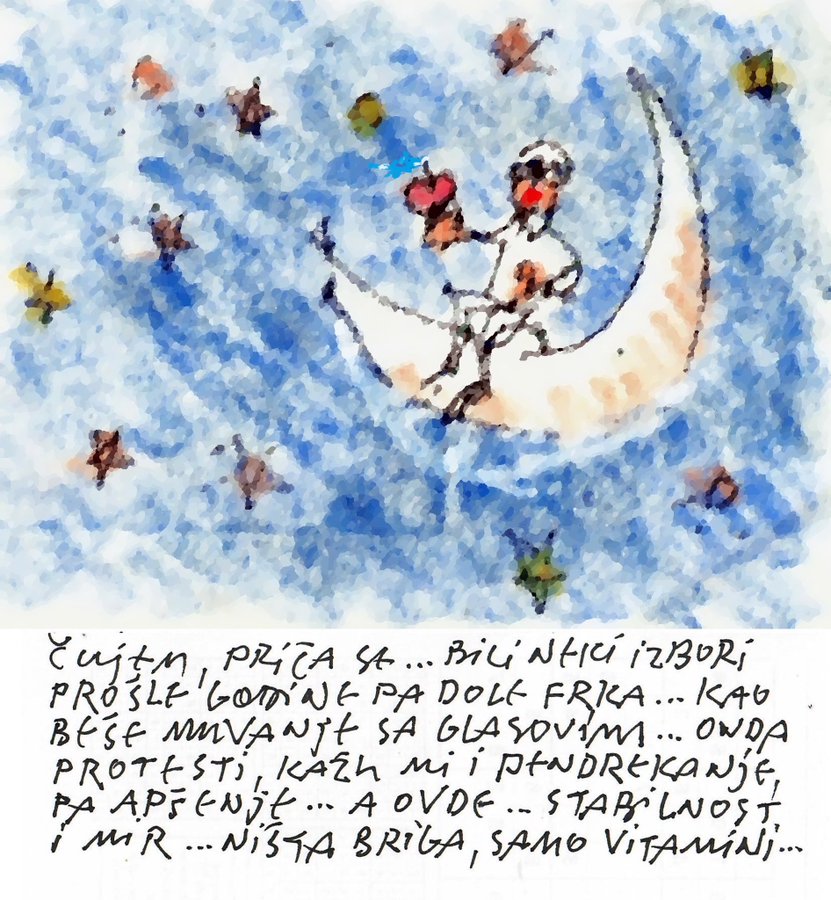 ČUJEM, PRIČA SE... BILI NEKI IZBORI
PROŠLE GODINE PA DOLE FRKA... KAO
BEŠE MUVANJE SA GLASOVIMA... ONDA
PROTESTI, KAŽU MI I PENDREKANJE,
PA APŠENJE... A OVDE... STABILNOST
I MIR... NIŠTA BRIGA, SAMO VITAMINI...